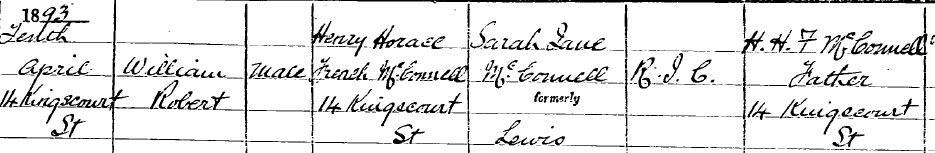 1893
Tenth Henry Horace Sarah Jane H. H. F McConnell
April William Male French McConnell McConnell R. I. C. Father
14 Kingscourt Robert 14 Kingscourt formerly 14 Kingscourt
St St Lewis St